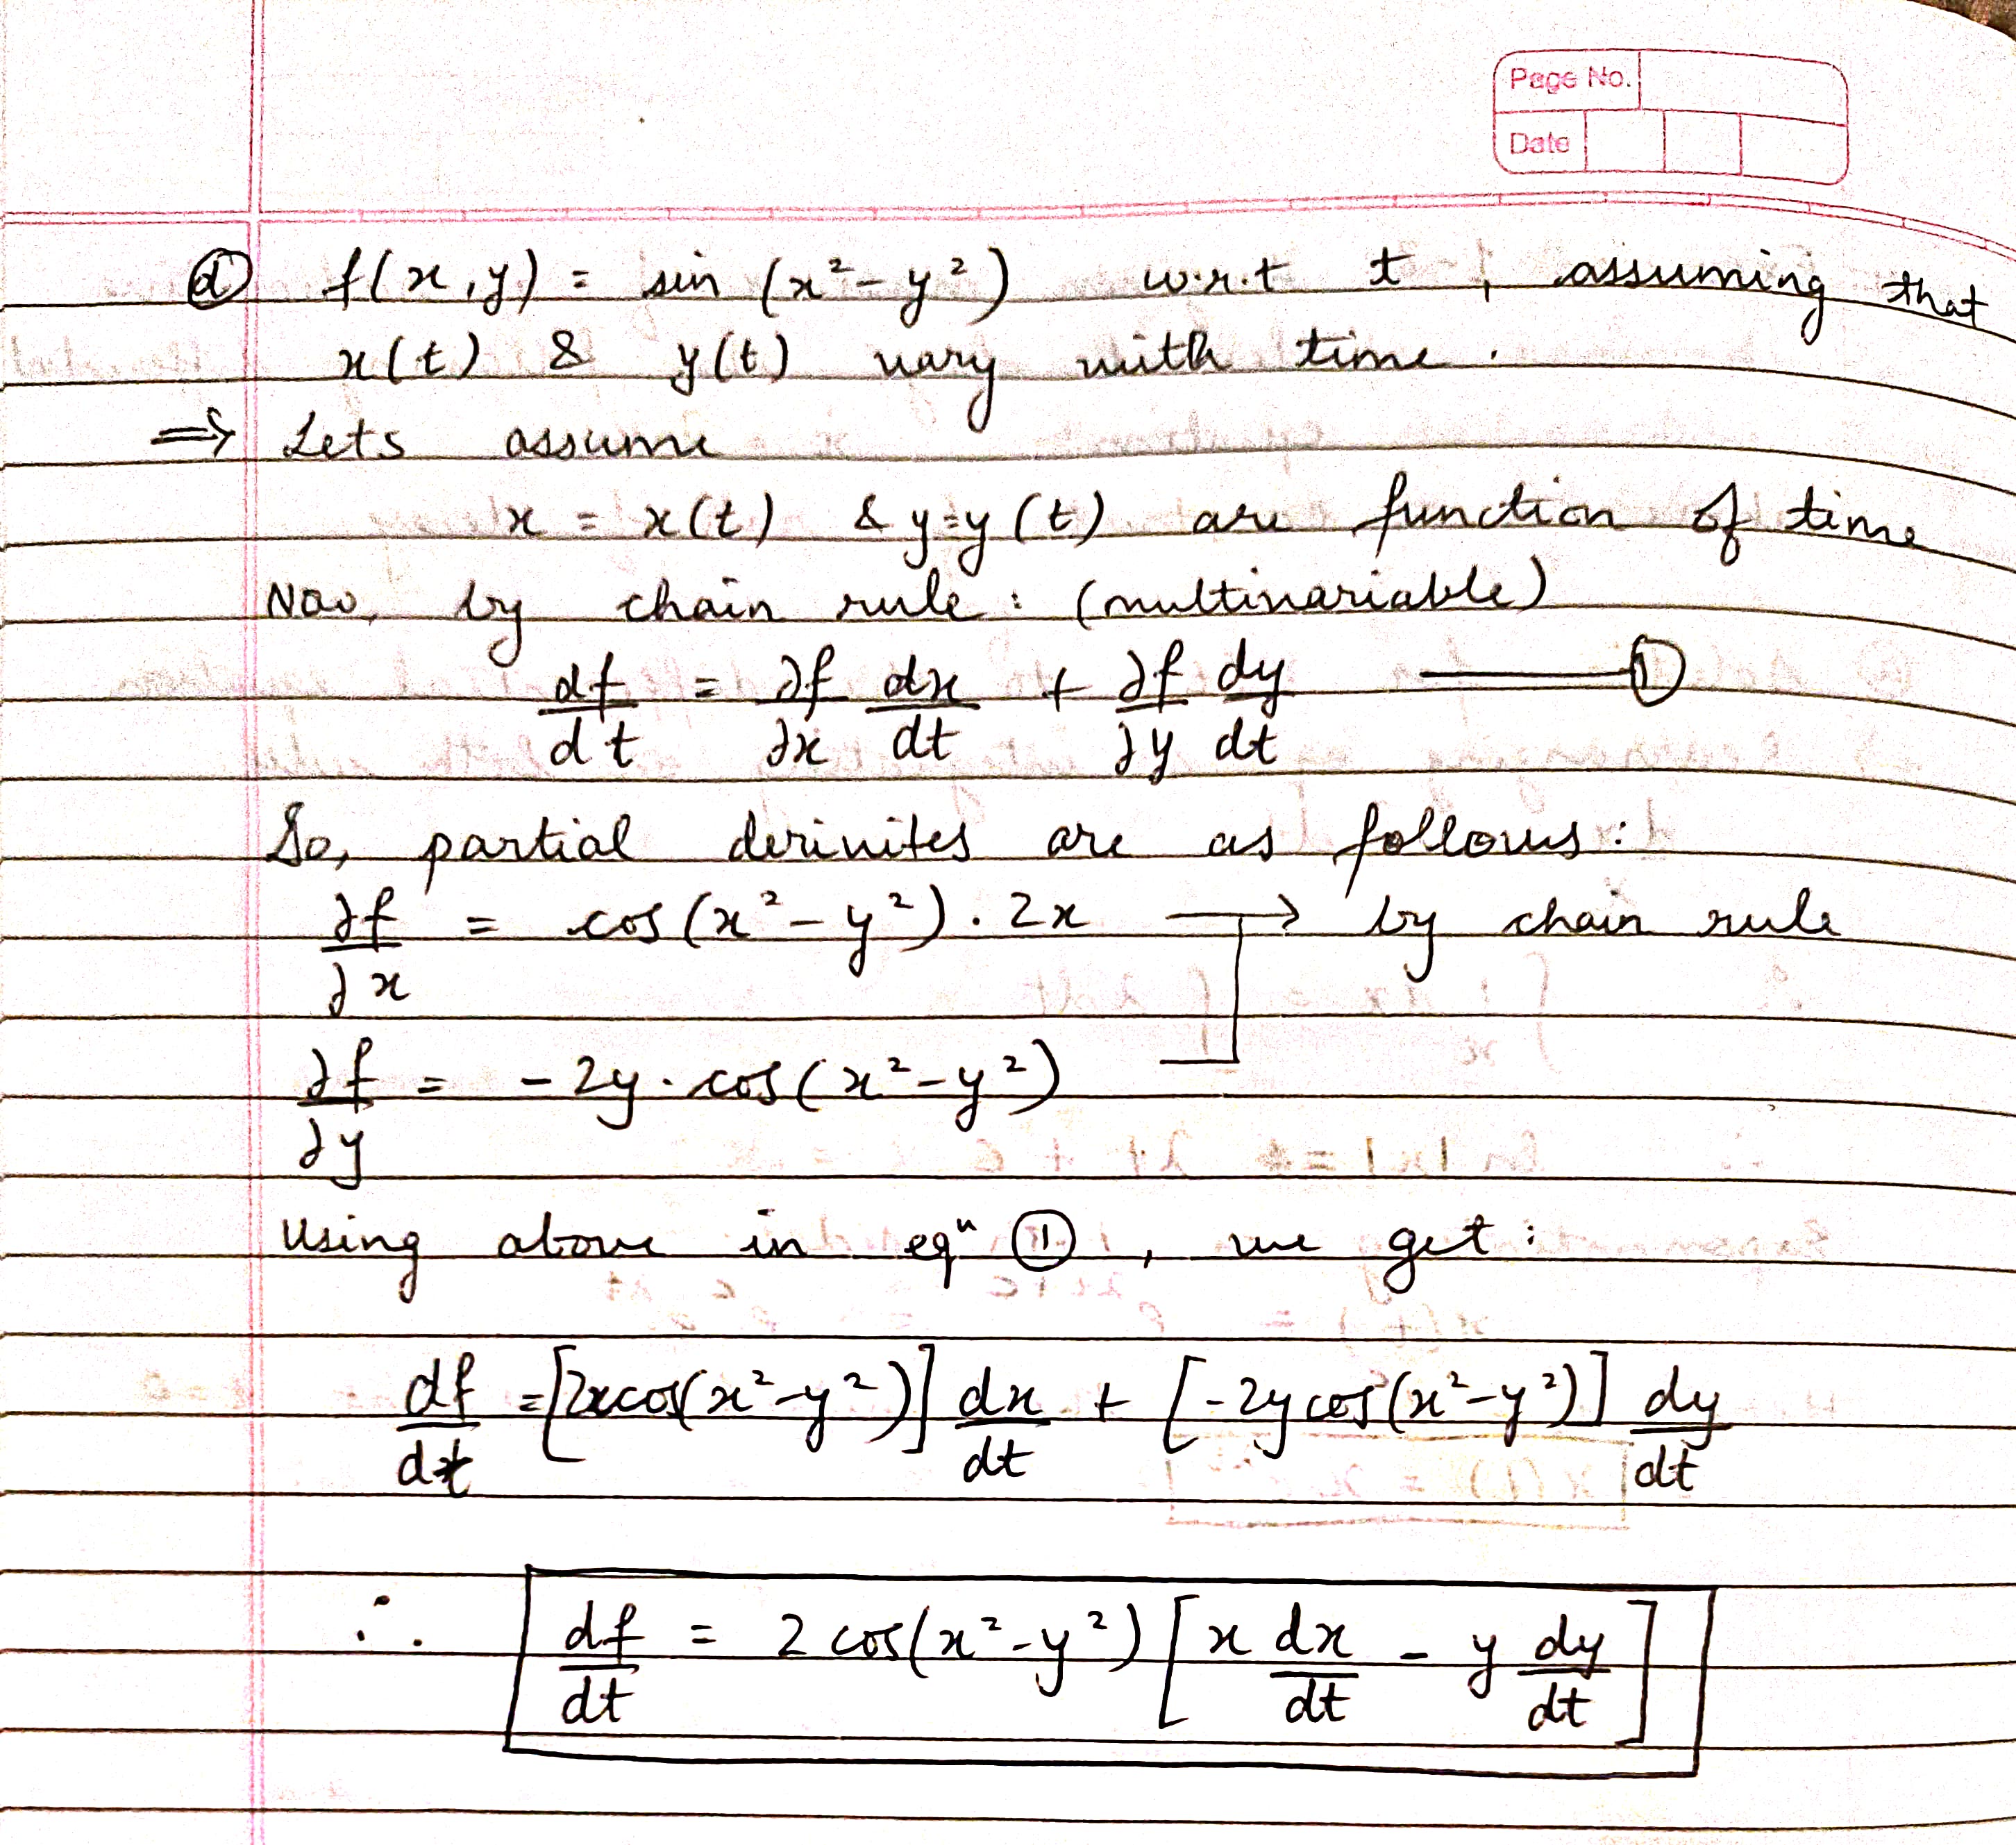 Page No.
Date
(d) f(x,y) = sin (x² - y²) w.r.t t, assuming that
x(t) & y(t) vary with time.
⇒ Lets assume
x = x(t) & y=y(t) are function of time
Now, by chain rule : (multivariable)
df/dt = ∂f/∂x dx/dt + ∂f/∂y dy/dt ——— ①
So, partial derivites are as follows :
∂f/∂x = cos(x² - y²) . 2x → by chain rule
∂f/∂y = - 2y . cos(x² - y²)
Using above in eqⁿ ①, we get :
df/dt = [2xcos(x² - y²)] dx/dt + [-2y cos(x² - y²)] dy/dt
∴ df/dt = 2 cos(x² - y²) [x dx/dt - y dy/dt]